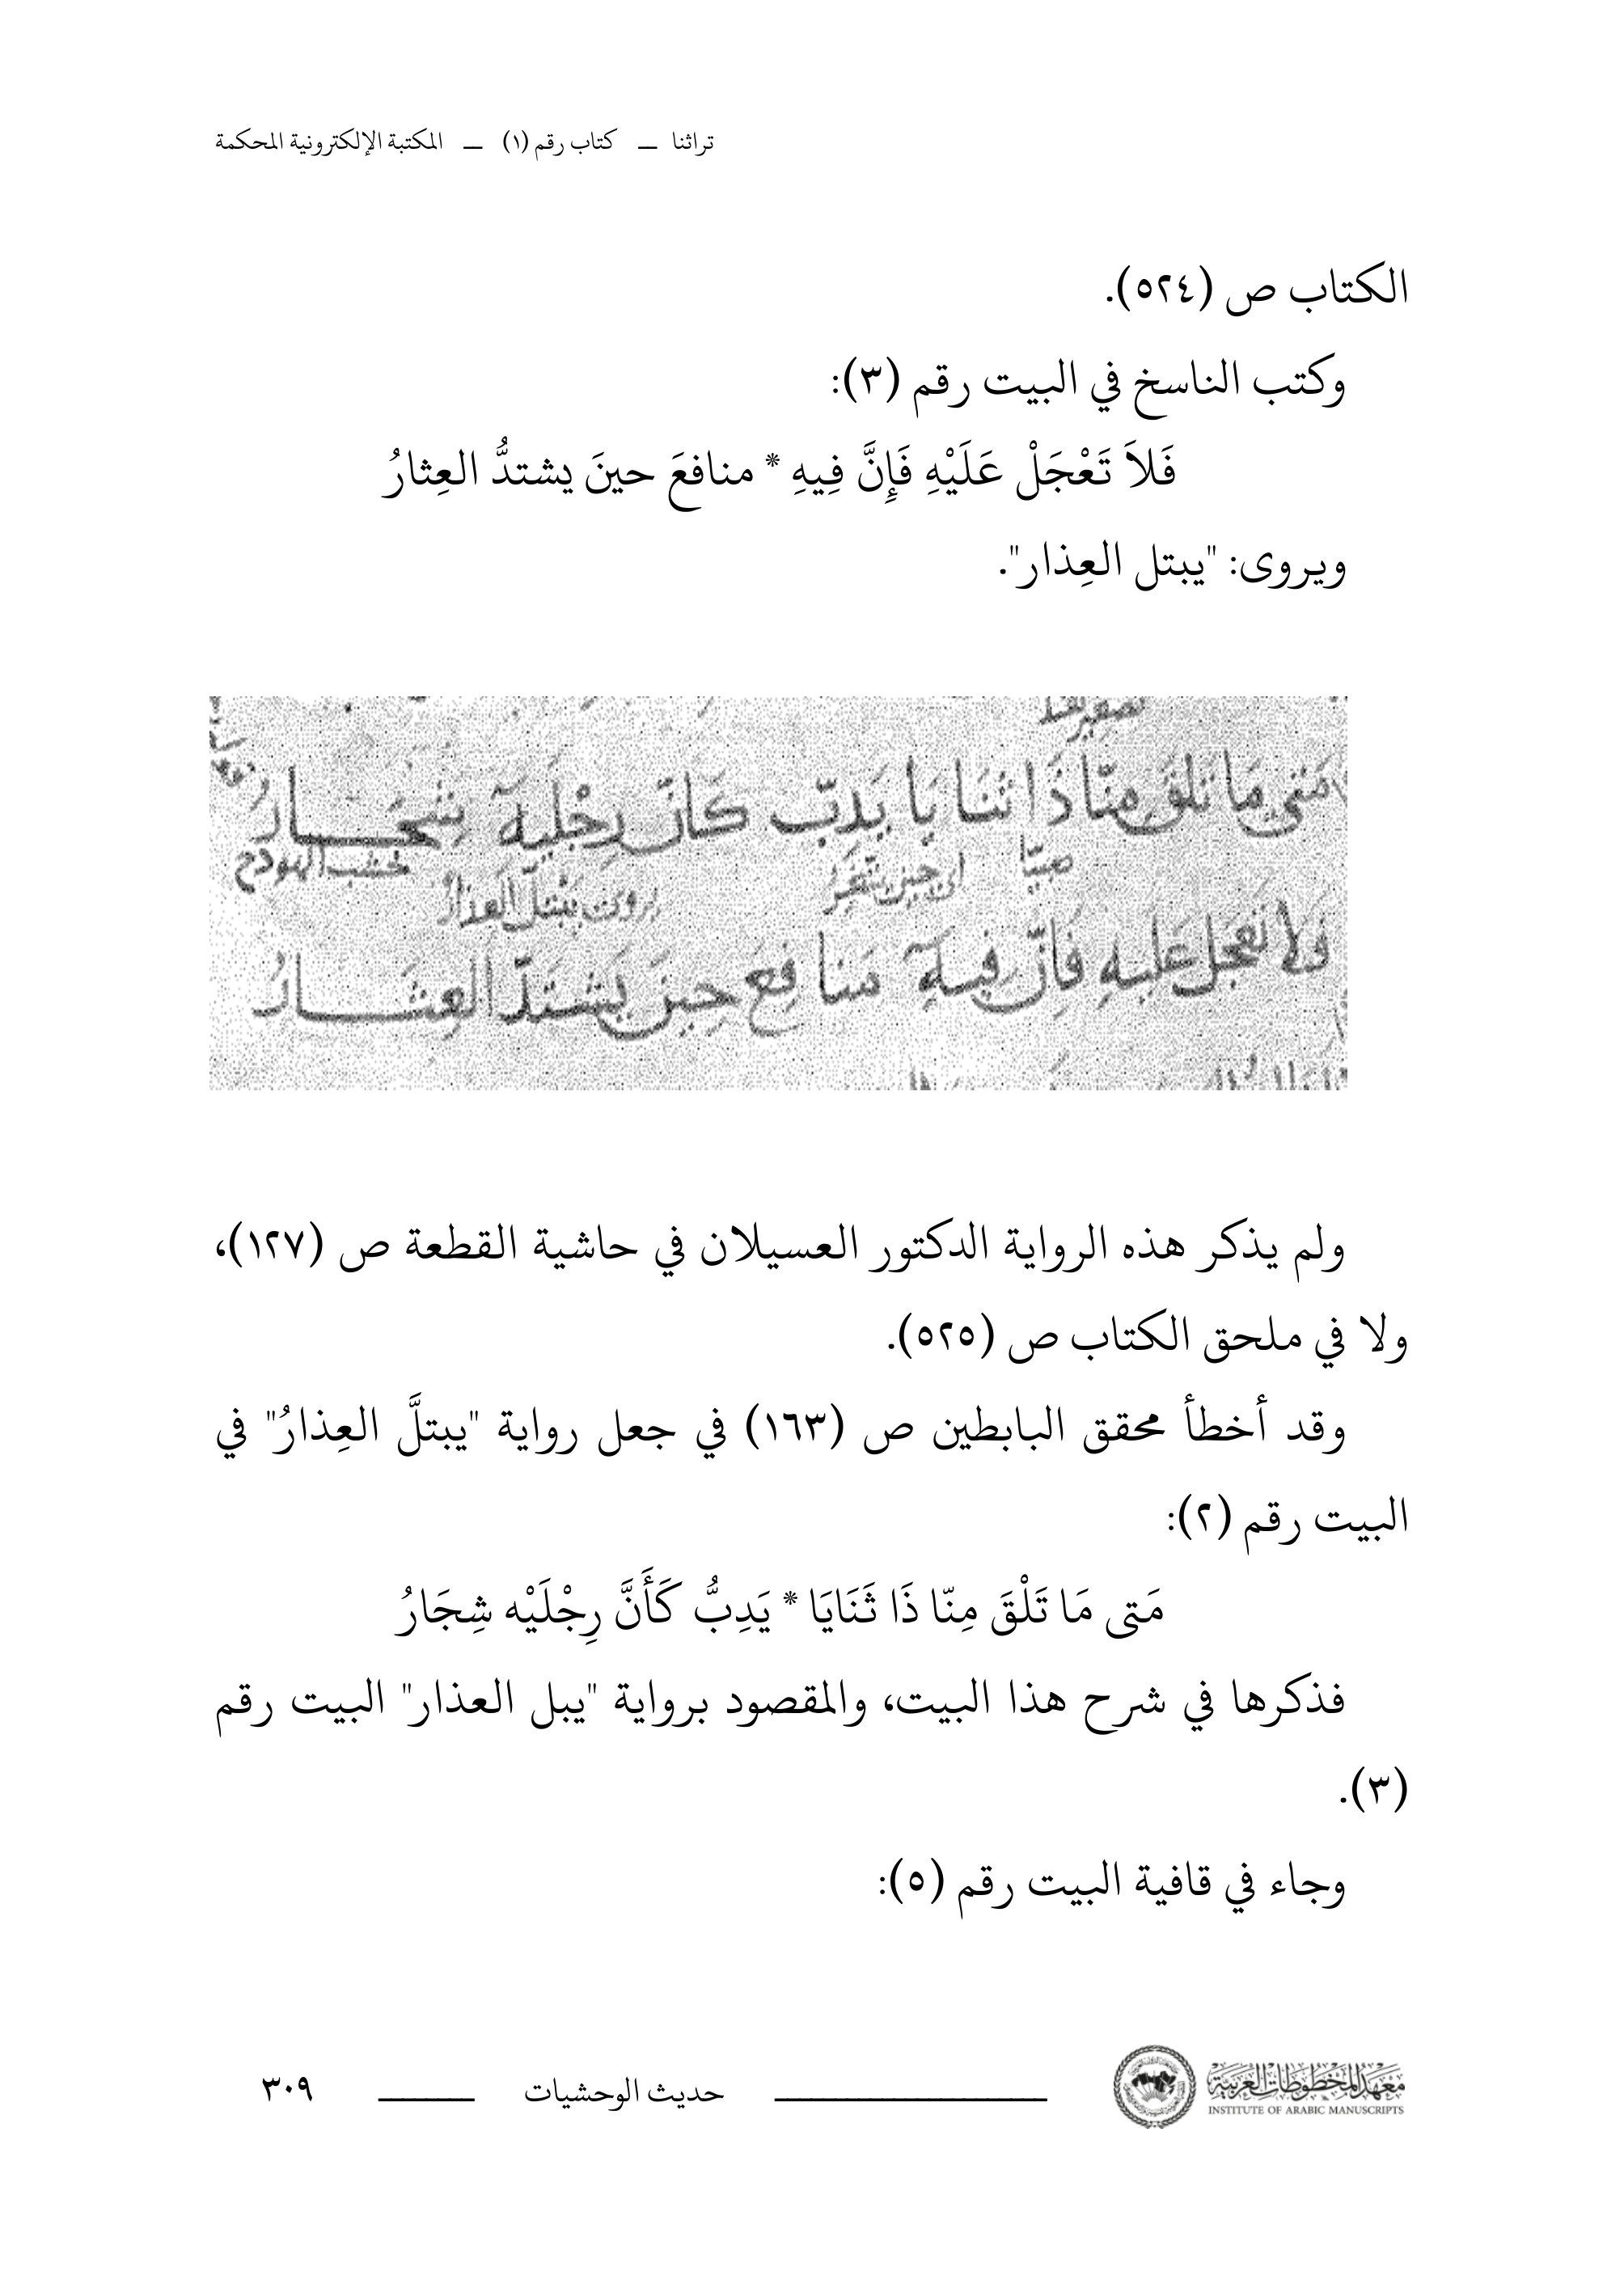 تراثنا — كتاب رقم (١) — المكتبة الإلكترونية المحكمة
الكتاب ص (٥٢٤).
وكتب الناسخ في البيت رقم (٣):
فَلاَ تَعْجَلْ عَلَيْهِ فَإِنَّ فِيهِ * منافعَ حينَ يشتدُّ العِثارُ
ويروى: "يبتل العِذار".
مَتى مَا تلقَ مِنّا ذَا ثَنَايَا يَدِبّ كَانّ رِجْليهِ شجَار
لخشب الهودج
صبيّا اى حين يتّغر يروى يبتلّ العذارُ
فَلا تعجل عَليهِ فَانّ فيهِ مَنافِعَ حِينَ يَشتدّ العِثَارُ
ولم يذكر هذه الرواية الدكتور العسيلان في حاشية القطعة ص (١٢٧)،
ولا في ملحق الكتاب ص (٥٢٥).
وقد أخطأ محقق البابطين ص (١٦٣) في جعل رواية "يبتلَّ العِذارُ" في
البيت رقم (٢):
مَتى مَا تَلْقَ مِنّا ذَا ثَنَايَا * يَدِبُّ كَأَنَّ رِجْلَيْه شِجَارُ
فذكرها في شرح هذا البيت، والمقصود برواية "يبل العذار" البيت رقم
(٣).
وجاء في قافية البيت رقم (٥):
معهد المخطوطات العربية
INSTITUTE OF ARABIC MANUSCRIPTS
حديث الوحشيات
٣٠٩